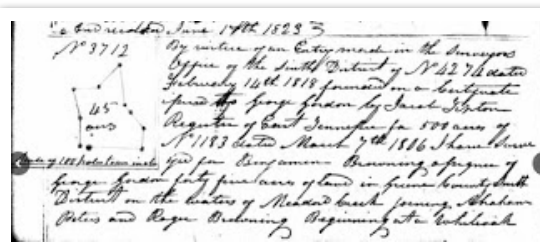 and recorded June 17th 1823
No 3712
By virtue of an Entry made in the Surveyors
Office of the Sixth District of No 4274 dated
February 14th 1818 founded on a Certificate
issued to George Gordon by Jacob Tipton
Register of East Tennessee for 500 acres of
No 1183 dated March 7th 1806 I have Surve
45
acrs
Scale of 100 poles to an inch
yed for Benjamin Browning assignee of
George Gordon forty five acres of land in Greene County Sixth
District on the waters of Meadow Creek joining Abraham
Peters and Roger Browning Beginning at a Whiteoak